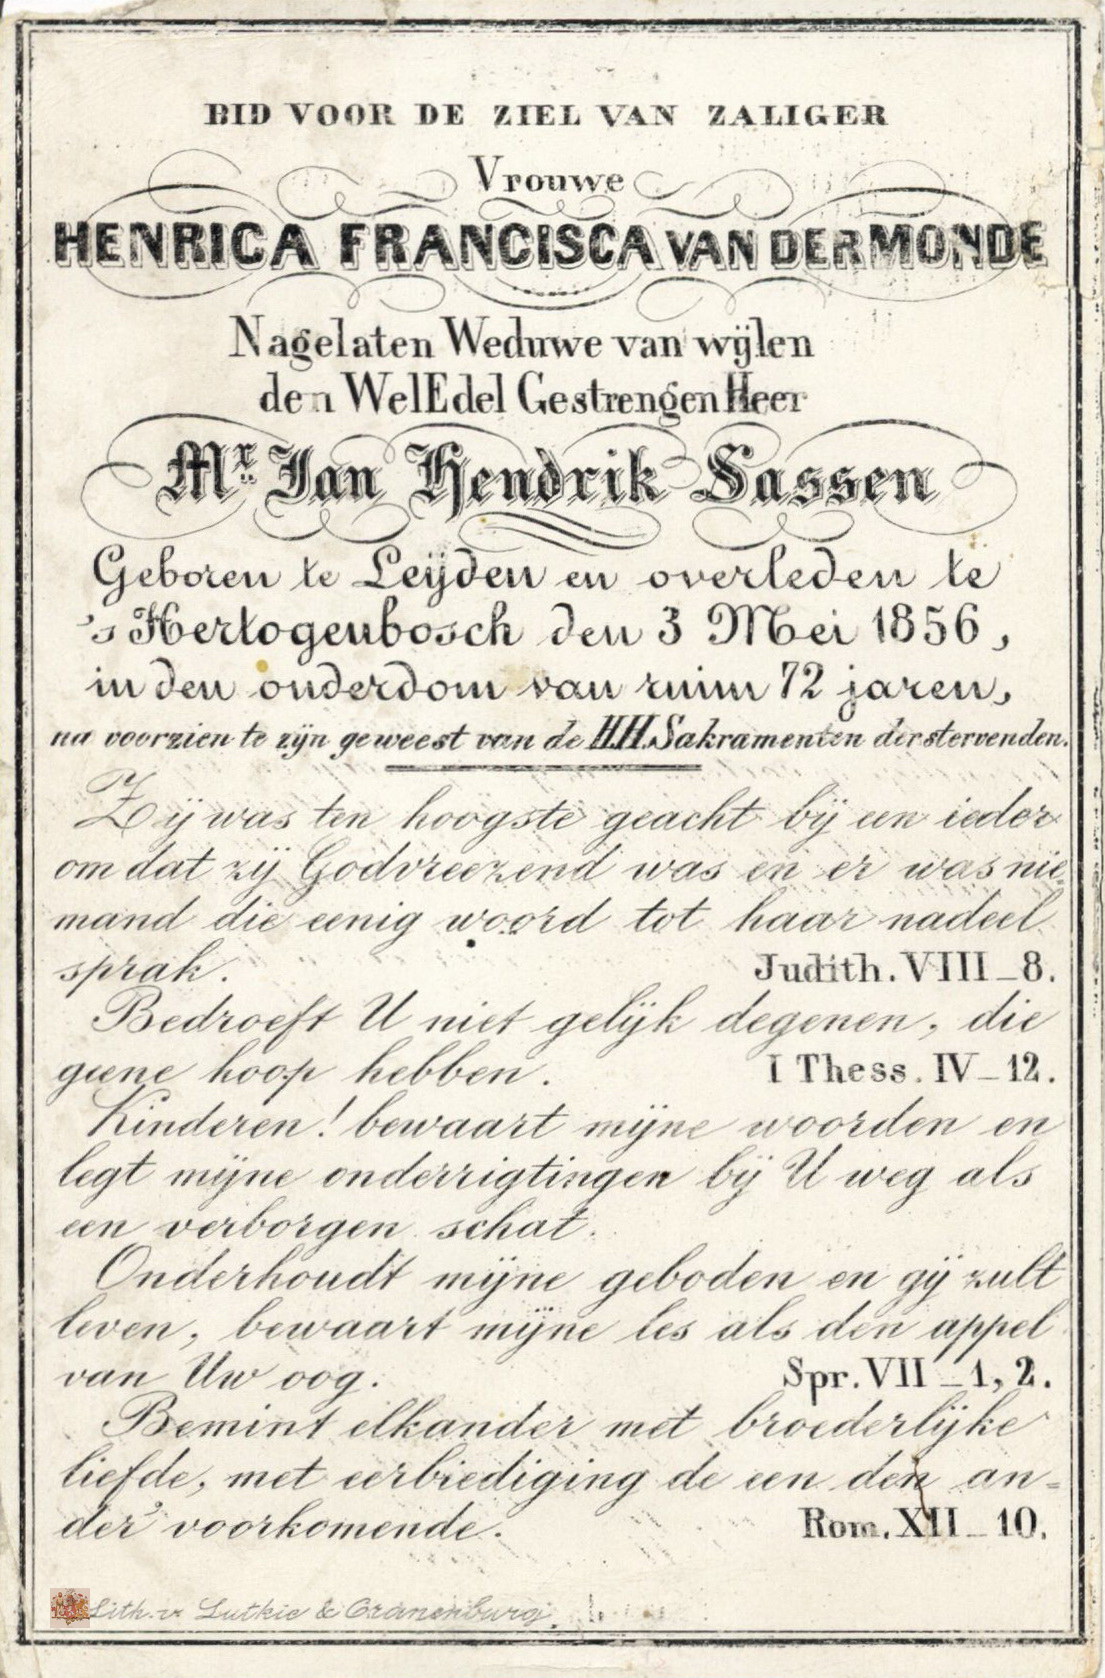 BID VOOR DE ZIEL VAN ZALIGER
Vrouwe
HENRICA FRANCISCA VAN DER MONDE
Nagelaten Weduwe van wijlen
den WelEdel Gestrengen Heer
Mr. Jan Hendrik Sassen
Geboren te Leijden en overleden te
's Hertogenbosch den 3 Mei 1856,
in den onderdom van ruim 72 jaren,
na voorzien te zijn geweest van de H.H. Sakramenten der stervenden.
Zij was ten hoogste geacht bij een ieder
om dat zij Godvreezend was en er was nie-
mand die eenig woord tot haar nadeel
sprak. Judith. VIII_8.
Bedroeft U niet gelijk degenen, die
geene hoop hebben. I Thess. IV_12.
Kinderen! bewaart mijne woorden en
legt mijne onderrigtingen bij U weg als
een verborgen schat.
Onderhoudt mijne geboden en gij zult
leven, bewaart mijne les als den appel
van Uw oog. Spr. VII_1, 2.
Bemint elkander met broederlijke
liefde, met eerbiediging de een den an=
der voorkomende. Rom. XII_10.
Lith. v. Lutkie & Cranenburg.